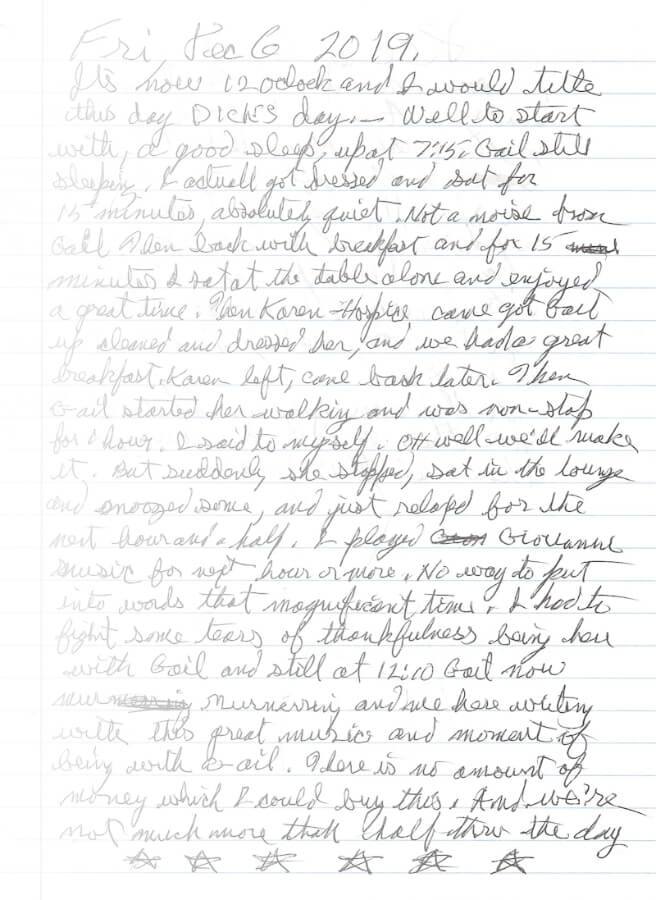 Fri Dec 6 2019.
Its now 12 Oclock and I would title
this day DICK'S day. — Well to start
with, a good sleep, up at 7:15. Gail still
sleepin. I actuall got dressed and sat for
15 minutes, absolutely quiet. Not a noise from
Gail. Then back with breakfast and for 15
minutes I sat at the table alone and enjoyed
a great time. Then Karen-Hospice came got Gail
up cleaned and dressed her, and we had a great
breakfast. Karen left, came back later. Then
Gail started her walking and was non-stop
for 1 hour. I said to myself. OH well we'll make
it. But suddenly she stopped, sat in the lounge
and snoozed some, and just relaxed for the
next hour and a half. I played Giovanni
music for next hour or more. No way to put
into words that magnificant time. I had to
fight some tears of thankfulness being here
with Gail and still at 12:10 Gail now
murmurring and me here writing
with this great music and moment of
being with Gail. There is no amount of
money which I could buy this. And we're
not much more than half thru the day